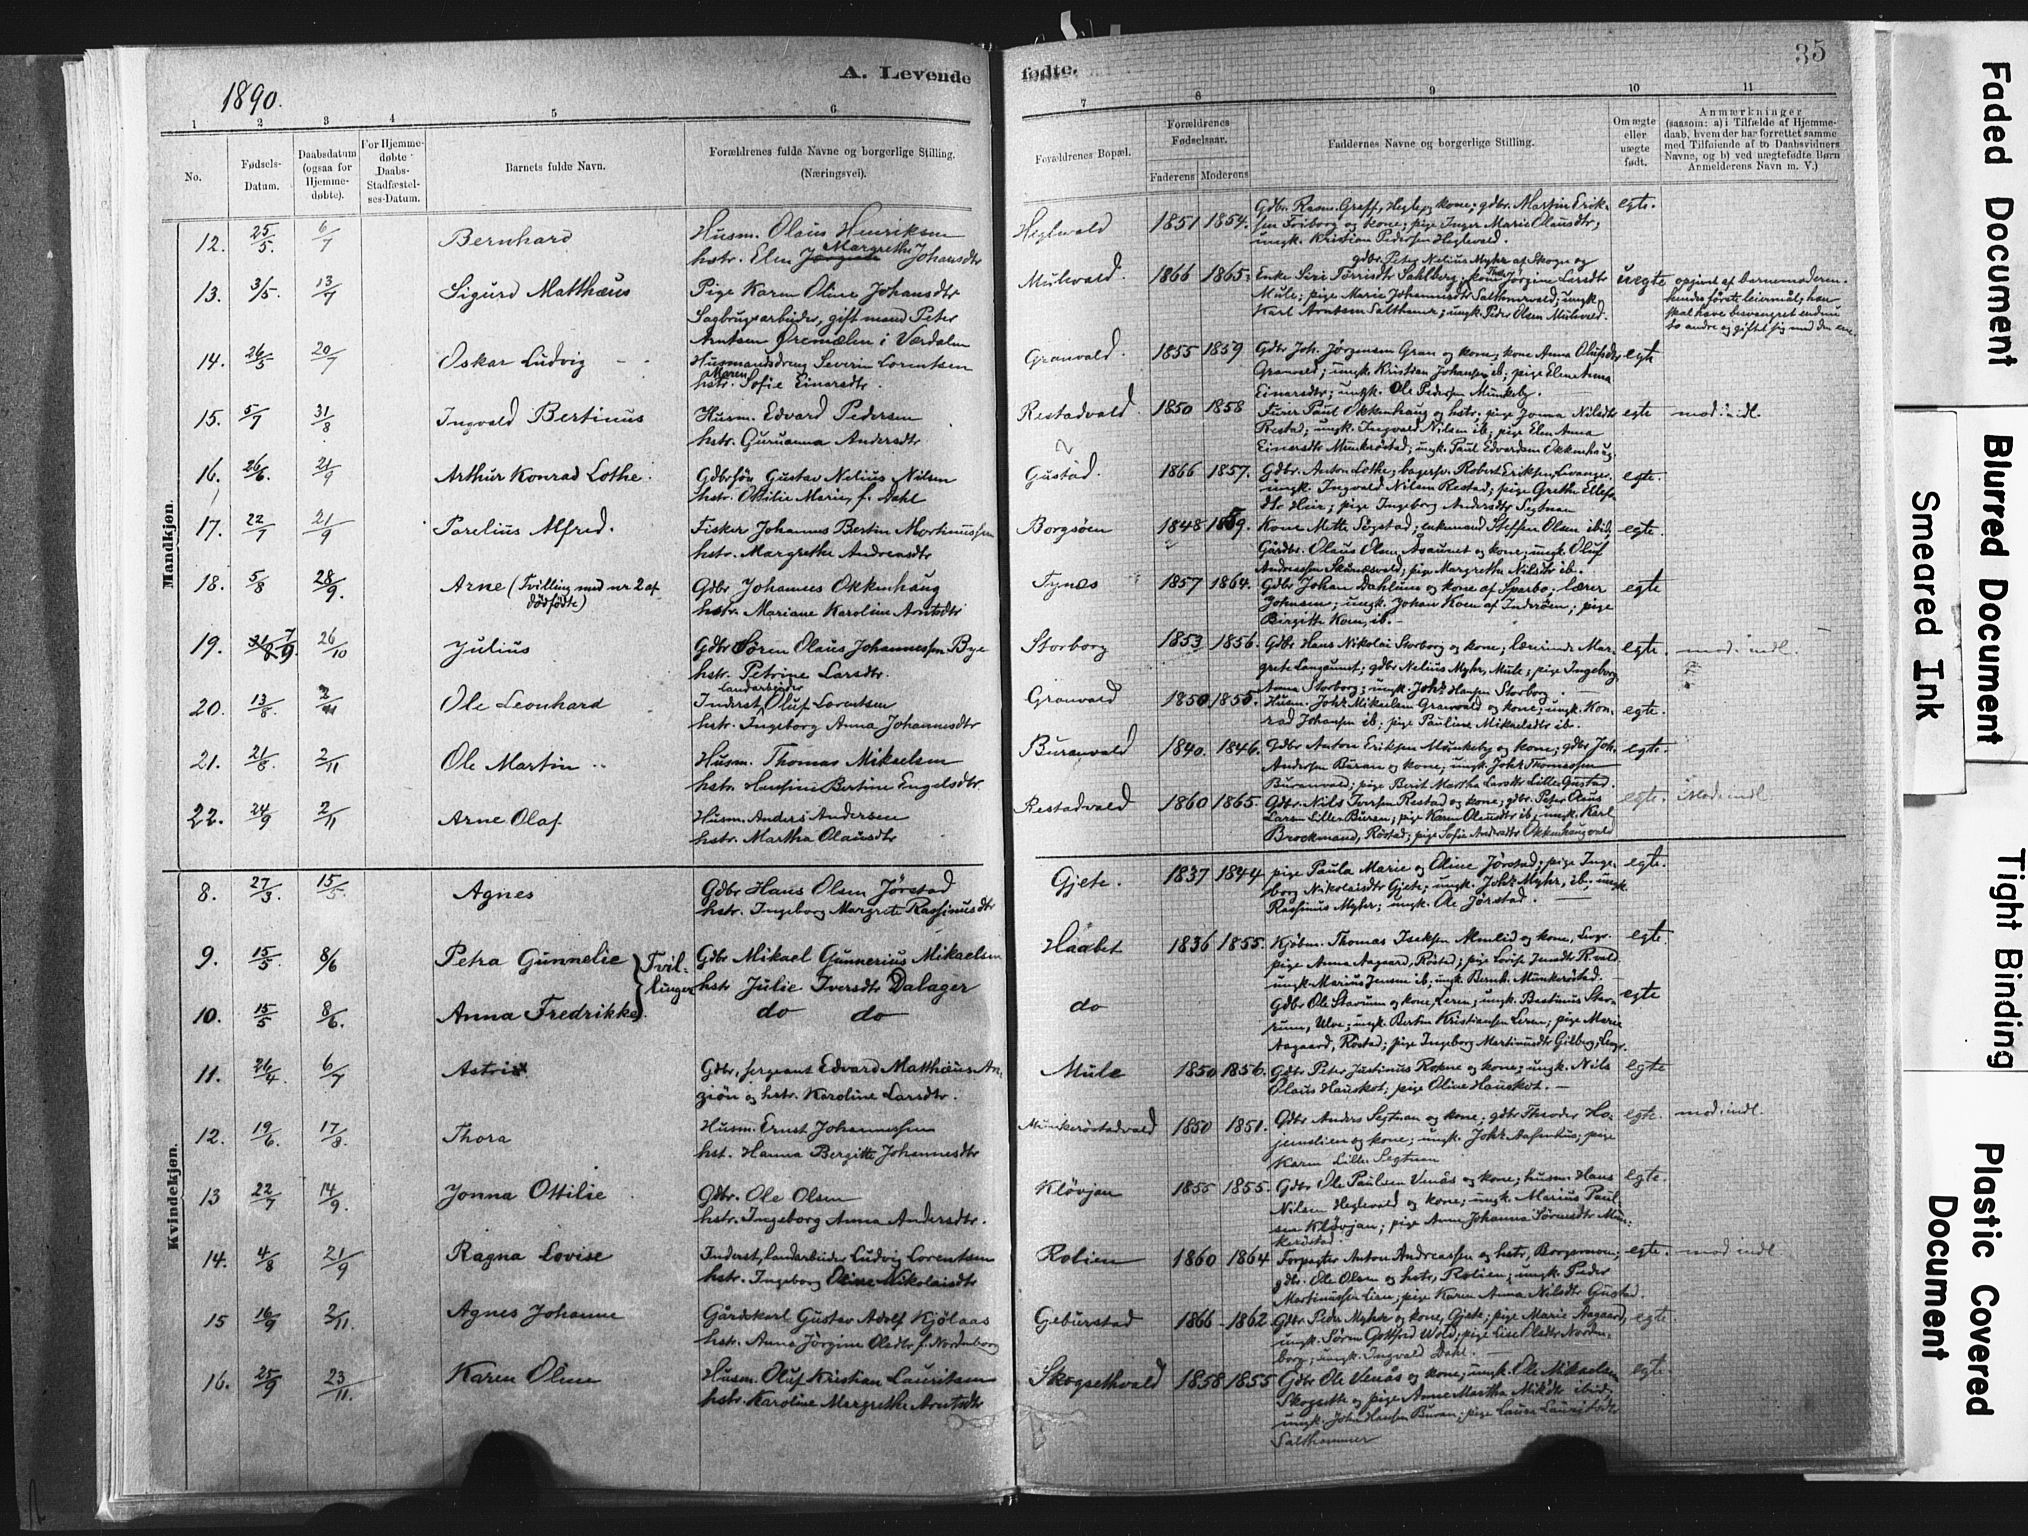 1890.
A. Levende
fødte.
35
1 2 3 4 5 6 7 8 9 10 11
No.
Fødsels-
Datum.
Daabsdatum
(ogsaa for
Hjemme-
døbte).
For Hjemme-
døbte
Daabs-
Stadfæstel-
ses-Datum.
Barnets fulde Navn.
Forældrenes fulde Navne og borgerlige Stilling.
(Næringsvei).
Forældrenes Bopæl.
Forældrenes
Fødselsaar.
Faderens Moderens
Faddernes Navne og borgerlige Stilling.
Om ægte
eller
uægte
født.
Anmærkninger
(saasom: a) i Tilfælde af Hjemme-
daab, hvem der har forrettet samme
med Tilføiende af to Daabsvidners
Navne, og b) ved uægtefødte Børn
Anmelderens Navn m. V.)
Mandkjøn.
12. 25/5 6/7 Bernhard
Husm. Olaus Henriksen
hstr. Elen Margrethe Johansdtr
Heglevald 1851 1854.
Gdbr. Rasm. Greff, Hegle og kone; gdbr. Martin Erik-
sen Friborg og kone; pige Inger Marie Olausdtr;
ungk. Kristian Pedersen Heglvald.
egte.
13. 3/5 13/7 Sigurd Matthæus
Pige Karen Oline Johansdtr
Sagbrugsarbeider, gift mand Peter
Arntsen Øremælen i Værdalen
Mulevald. 1866 1865
gdbr. Peter Nelius Myhr af Skogn og
Enke Siri Tørrisdtr Sahlberg; kone Jørgine Larsdtr
Mule; pige Marie Johannesdtr Salthamrvald; ungk.
Karl Arntsen Salthamr; ungk. Peder Olsen Mulevald.
uegte
opgivet af barnemoderen.
hendes første leiermål; han
skal have besvangret endnu
to andre og giftet sig med den ene
14. 26/5 20/7 Oskar Ludvig
Husmandsdreng Severin Lorentsen
hstr. Maren Sofie Einarsdtr.
Granvald. 1855 1859
Gdbr Joh. Jørgensen Gran og kone; kone Anna Olufsdtr
Granvald; ungk. Kristian Johansen ib; pige Elen Anna
Einarsdtr; ungk. Ole Pedersen Munkeby.
egte
15. 5/7 31/8 Ingvald Bertinus
Husm. Edvard Pedersen
hstr. Guruanna Andersdtr
Restadvald. 1850 1858
Furer Paul Okkenhaug og hstr. pige Jonna Nilsdtr
Restad; ungk. Ingvald Nilsen ib; pige Elen Anna
Einarsdtr Munkrøstad; ungk. Paul Edvardsen Okkenhaug
egte mod. indl.
16. 26/6. 21/9 Arthur Konrad Lothe.
Gdbrsøn Gustav Nelius Nilsen
hstr. Ottilie Marie, f. Dahl
Gustad. 1866 1857.
Gdbr. Anton Lothe; bagersv. Robert Eriksen, Levanger
ungk. Ingvald Nilsen Restad; pige Grethe Ellefs-
dtr Heir; pige Ingeborg Andersdtr Segtnan
egte.
17. 22/7 21/9 Parelius Alfred.
Fisker Johannes Bertin Martinussen
hstr. Margrethe Andreasdtr
Borgsøen 1848 1859.
Kone Mette Søgstad; enkemand Steffen Olsen ibid;
Gårdbr. Olaus Olsen Avaunet og kone; ungk. Oluf
Andreassen Skånesvald; pige Margrethe Nilsdtr ib.
egte.
18. 5/8 28/9. Arne (Tvilling med nr 2 af
dødfødte)
Gdbr Johannes Okkenhaug
hstr. Mariane Karoline Arntsdtr
Tynæs 1857 1864.
Gdbr Johan Dahlum og kone af Sparbo; lærer
Johnsen; ungk. Johan Koen af Inderøen; pige
Birgitte Koen, ib.
egte
19. 7/9 26/10 Julius
Gdbr Søren Olaus Johannessen Bye
hstr. Petrine Larsdtr.
Storborg 1853 1856.
Gdbr Hans Nikolai Storborg og kone; lærerinde Mar-
grete Langåunet; gdbr Nelius Myhr, Mule; pige Ingeborg
Anna Storborg; ungk. Johs Hansen Storborg.
egte. mod. indl.
20. 13/8. 2/11 Ole Leonhard
Inderst, landarbeider Oluf Lorentsen
hstr. Ingeborg Anna Johannesdtr
Granvald 1850 1855.
Husm. Johs Mikaelsen Granvald og kone; ungk. Kon-
rad Johansen ib; pige Pauline Mikaelsdtr ib.
egte.
21. 21/8. 2/11 Ole Martin
Husm. Thomas Mikaelsen
hstr. Hansine Bertine Engelsdtr.
Buranvald 1840. 1846.
Gdbr Anton Eriksen Munkeby og kone; gdbr Joh.
Andersen Buran og kone; ungk. Johs Thomassen
Buranvald; pige Berit Martha Larsdtr Lille Gustad.
egte.
22. 24/9 2/11 Arne Olaf
Husm. Anders Andersen
hstr. Martha Olausdtr
Restadvald 1860 1865.
Gdbr. Nils Iversen Restad og kone; gdbr. Peter Olaus
Larsen Lille-Buran; pige Karen Olausdtr ib; ungk. Karl
Brockmand, Røstad; pige Sofie Andersdtr Okkenhaugvald
egte. mod. indl
Kvindekjøn.
8. 27/3. 15/5. Agnes
Gdbr Hans Olsen Jørstad
hstr. Ingeborg Margrete Rasmusdtr
Gjete. 1837 1844
pige Paula Marie og Oline Jørstad; pige Inge-
borg Nikolaisdtr Gjete; ungk. Johs Myhr, ib; ungk.
Rasmus Myhr; ungk. Ole Jørstad.
egte.
9. 15/5 8/6 Petra Gunnelie } Tvil-
linger
Gdbr Mikael Gunnerius Mikaelsen
hstr Julie Iversdtr Dalager
Håabet 1836 1855.
Kjøbm. Thomas Iseksen Almlid og kone, Levgr.
pige Anna Aagaard, Røstad; pige Lovise Jensdtr R.vald
ungk. Marius Jensen ib; ungk. Bernh. Munkerøstad.
egte.
10. 15/5 8/6. Anna Fredrikke
do do
do
Gdbr Ole Stavrum og kone, Leren; ungk. Bastinus Stav-
rum, Ulve; ungk. Bertin Kristiansen Leren; pige Marie
Aagaard, Røstad; pige Ingeborg Martinusdtr Gilberg, Levgr.
egte
11. 26/4. 6/7 Astri
Gdbr, sergeant Edvard Matthæus An-
ziøn og hstr. Karoline Larsdtr.
Mule 1850 1856.
Gdbr Peter Justinus Rokne og kone; ungk. Nils
Olaus Hauskot; pige Oline Hauskot.
egte
12. 19/6. 17/8. Thora
Husm. Ernst Johannessen
hst. Hanna Bergitte Johannesdtr
Munkerøstadvald 1850 1851.
Gdbr Anders Segtnan og kone; gdbr Theodor Ho-
jemslien og kone; ungk. Johs Aasenhus; pige
Karen Lille-Segtnan
egte. mod. indl.
13 22/7 14/9. Jonna Ottilie
Gdbr. Ole Olsen
hstr. Ingeborg Anna Andersdtr.
Kløvjan 1855 1855.
Gdbr Ole Paulsen Venås og kone; husm Hans
Nilsen Heglevald og kone; ungk. Marius Paul-
sen Kløvjan; pige Anne Johanna Sørensdtr Mun-
kerøstad.
egte.
14. 4/8 21/9 Ragna Lovise
Inderst, landarbeider Ludvig Lorentsen
hstr. Ingeborg Oline Nikolaisdtr
Rolien 1860 1864
Forpagter Anton Andreassen og hstr, Borgsmoen;
gdbr. Ole Olsen og hstr, Rolien; ungk. Peder
Martinussen Leren; pige Karen Anna Nilsdtr Gustad.
egte. mod indl
15 16/9 2/11. Agnes Johanne
Gårdskarl Gustav Adolf Kjölaas
hstr. Anna Jørgine Olsdtr f. Nordenborg
Gebürstad 1866 1862
Gdbr Peder Myhr og kone, Gjete; pige Marie Aagaard,
ungk. Søren Gottfred Wold; pige Lise Olsdtr Norden-
borg; ungk. Ingvald Dahl.
egte.
16. 25/9 23/11. Karen Oline
Husm. Oluf Kristian Lauritsen
hstr. Karoline Margrethe Arntsdtr
Skogsethvald 1858 1855
Gdbr Ole Venås og kone; ungk. Ole Mikaelsen
Skogseth og pige Anne Martha Mikdtr ibid;
ungk. Johs Hansen Buran; pige Laura Lauritsdtr
Salthammer
egte
Faded Document
Blurred Document
Smeared Ink
Tight Binding
Plastic Covered
Document